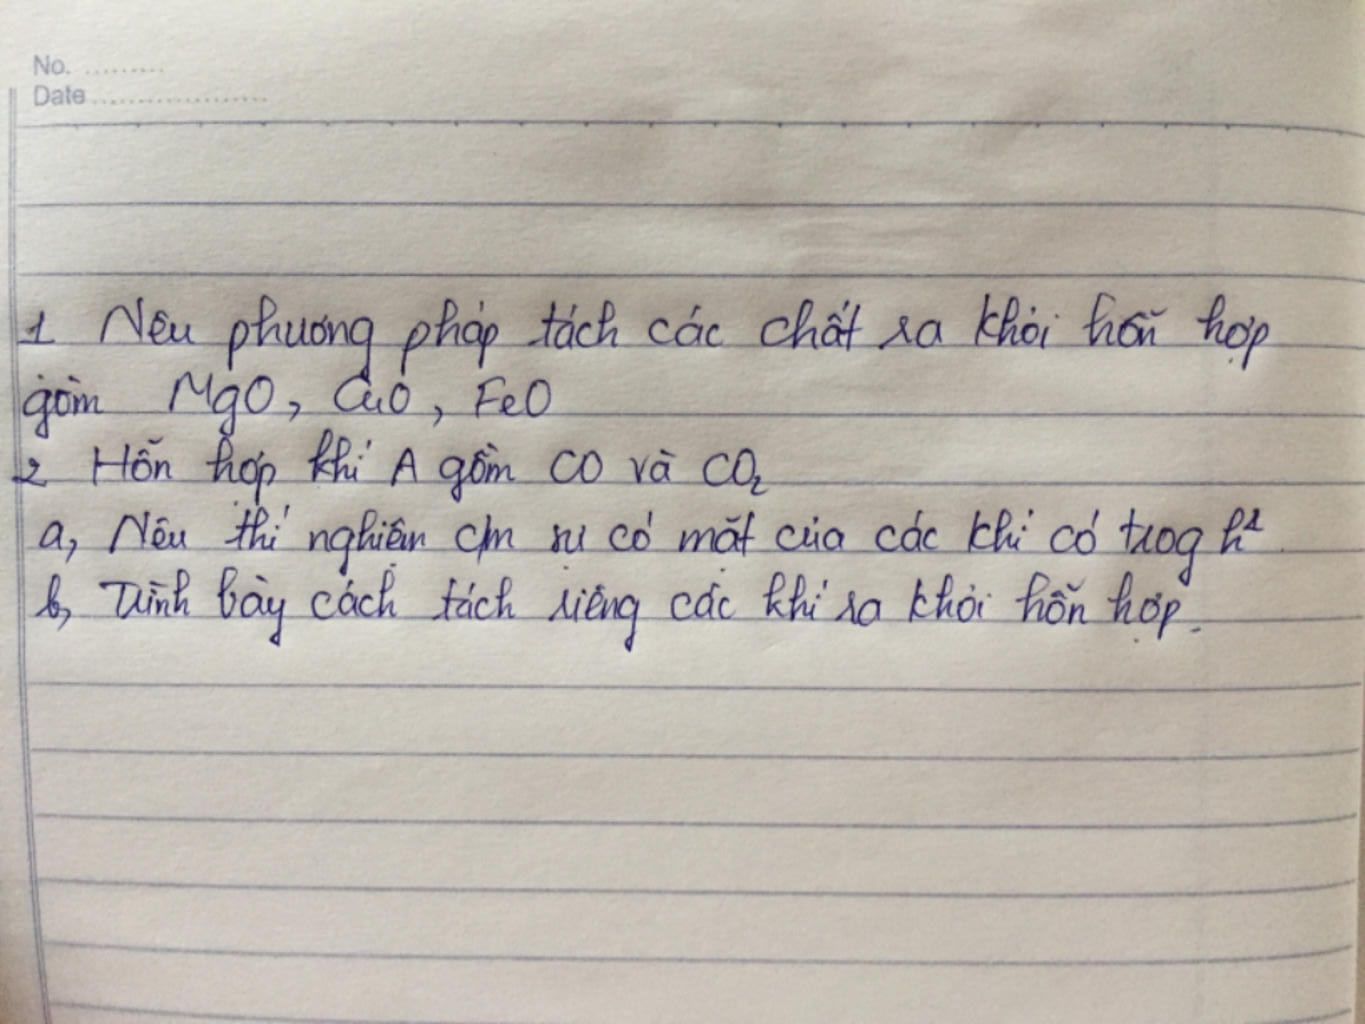 No. .........
Date ...................
1 Nêu phương pháp tách các chất ra khỏi hỗn hợp
gồm MgO, CuO, FeO
2 Hỗn hợp khí A gồm CO và CO₂
a, Nêu thí nghiệm c/m sự có mặt của các khí có trog h²
b, Trình bày cách tách riêng các khí ra khỏi hỗn hợp.